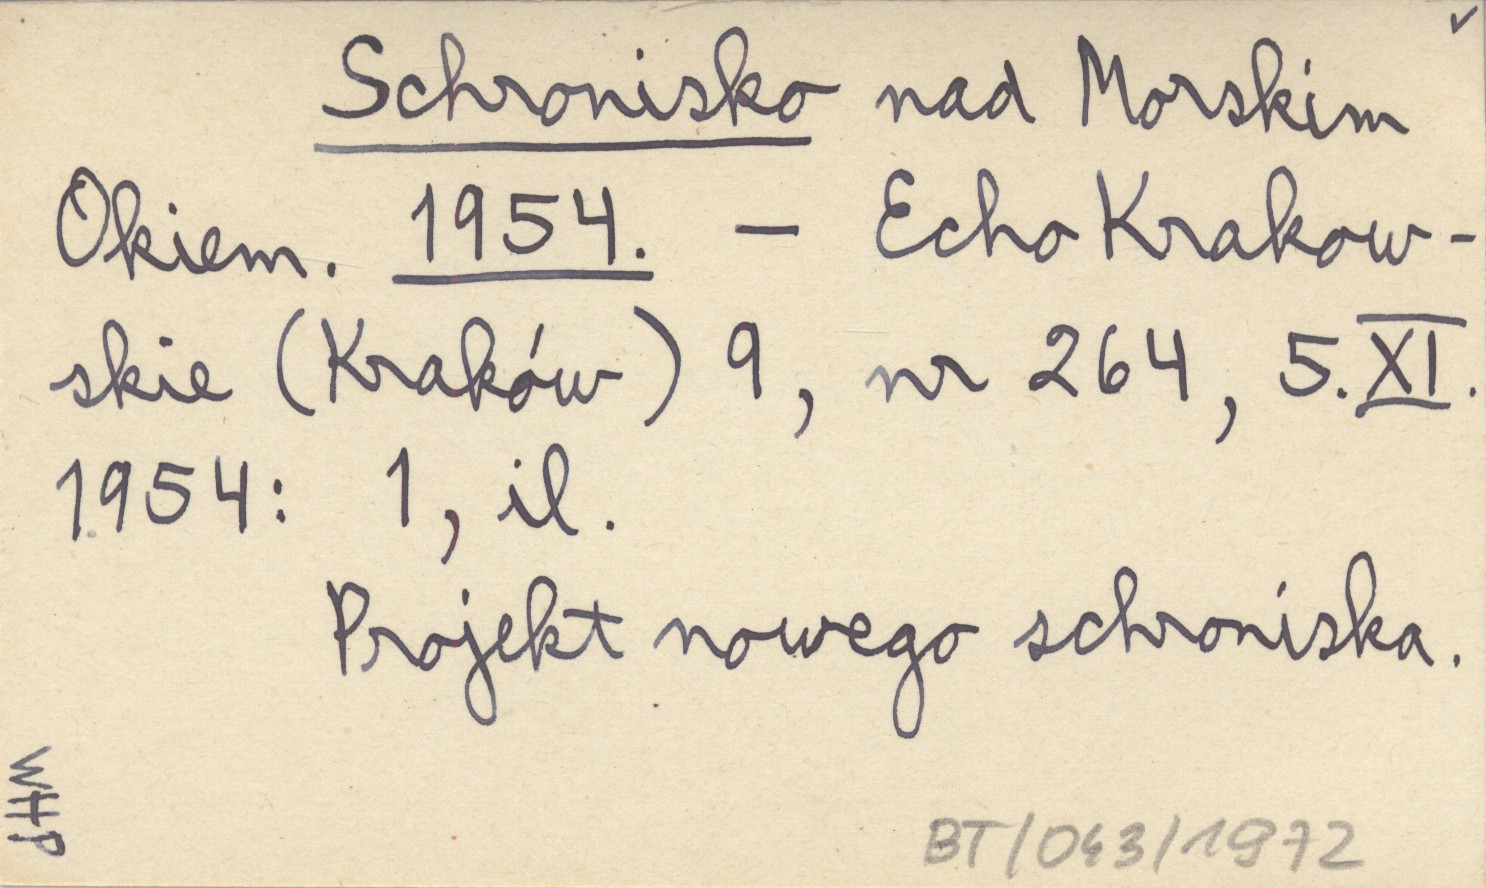 Schronisko nad Morskim
Okiem. 1954. – Echo Krakow-
skie (Kraków) 9, nr 264, 5.XI.
1954: 1, il.
Projekt nowego schroniska.
WHP
BT/043/1972